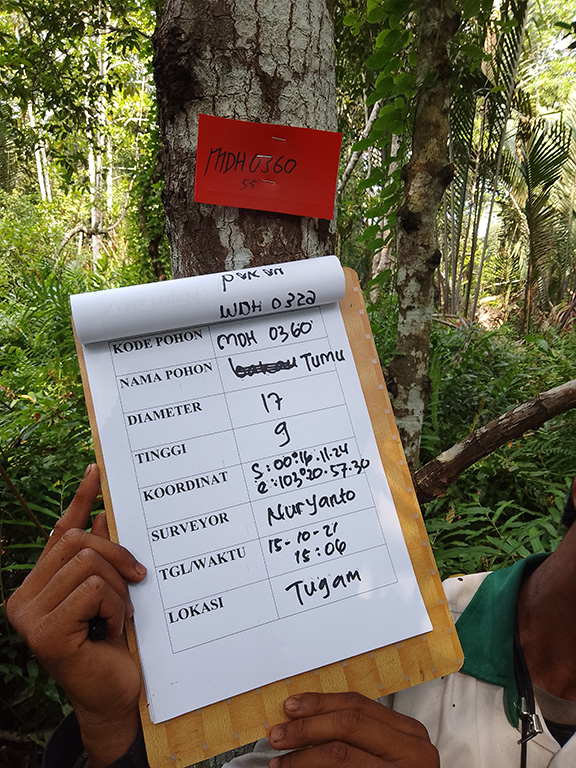 MDH 0360
55
WDH 0322
KODE POHON MDH 0360
NAMA POHON TUMU
DIAMETER 17
TINGGI 9
KOORDINAT S : 00°16.11.24
e : 103°20.57.30
SURVEYOR Nuryanto
TGL/WAKTU 15-10-21
15:06
LOKASI Tugam